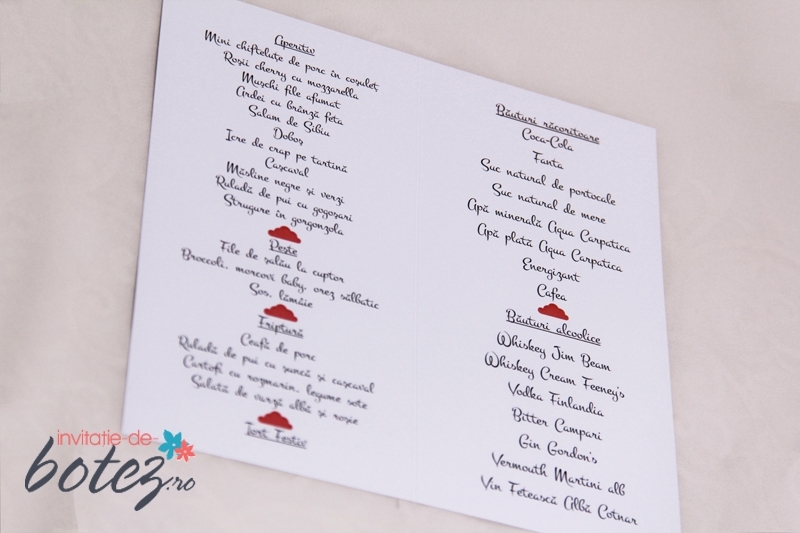 Aperitiv
Mini chifteluțe de porc în coșuleț
Roșii cherry cu mozzarella
Mușchi file afumat
Ardei cu brânză feta
Salam de Sibiu
Doboș
Icre de crap pe tartină
Cașcaval
Măsline negre și verzi
Ruladă de pui cu gogoșari
Strugure în gorgonzola
Pește
File de șalău la cuptor
Broccoli, morcovi baby, orez sălbatic
Sos, lămâie
Friptură
Ceafă de porc
Ruladă de pui cu șuncă și cașcaval
Cartofi cu rozmarin, legume sote
Salată de varză albă și roșie
Tort Festiv
Băuturi răcoritoare
Coca-Cola
Fanta
Suc natural de portocale
Suc natural de mere
Apă minerală Aqua Carpatica
Apă plată Aqua Carpatica
Energizant
Cafea
Băuturi alcoolice
Whiskey Jim Beam
Whiskey Cream Feeney's
Vodka Finlandia
Bitter Campari
Gin Gordon's
Vermouth Martini alb
Vin Fetească Albă Cotnar
invitatie-de-
botez.ro